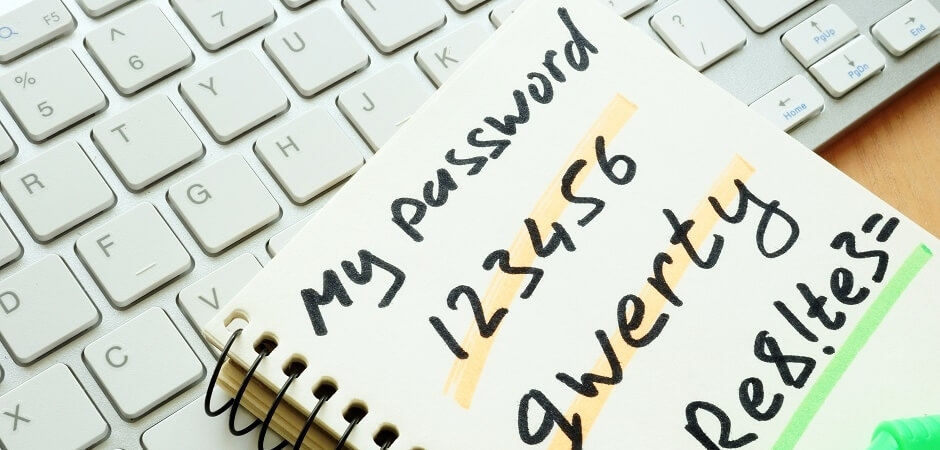 My password
123456
qwerty
Re8!te3=
F5
^ 6
% 5
Y
U
T
H
J
K
R
G
F
D
V
C
X
? /
PgUp
PgDn
Home
End